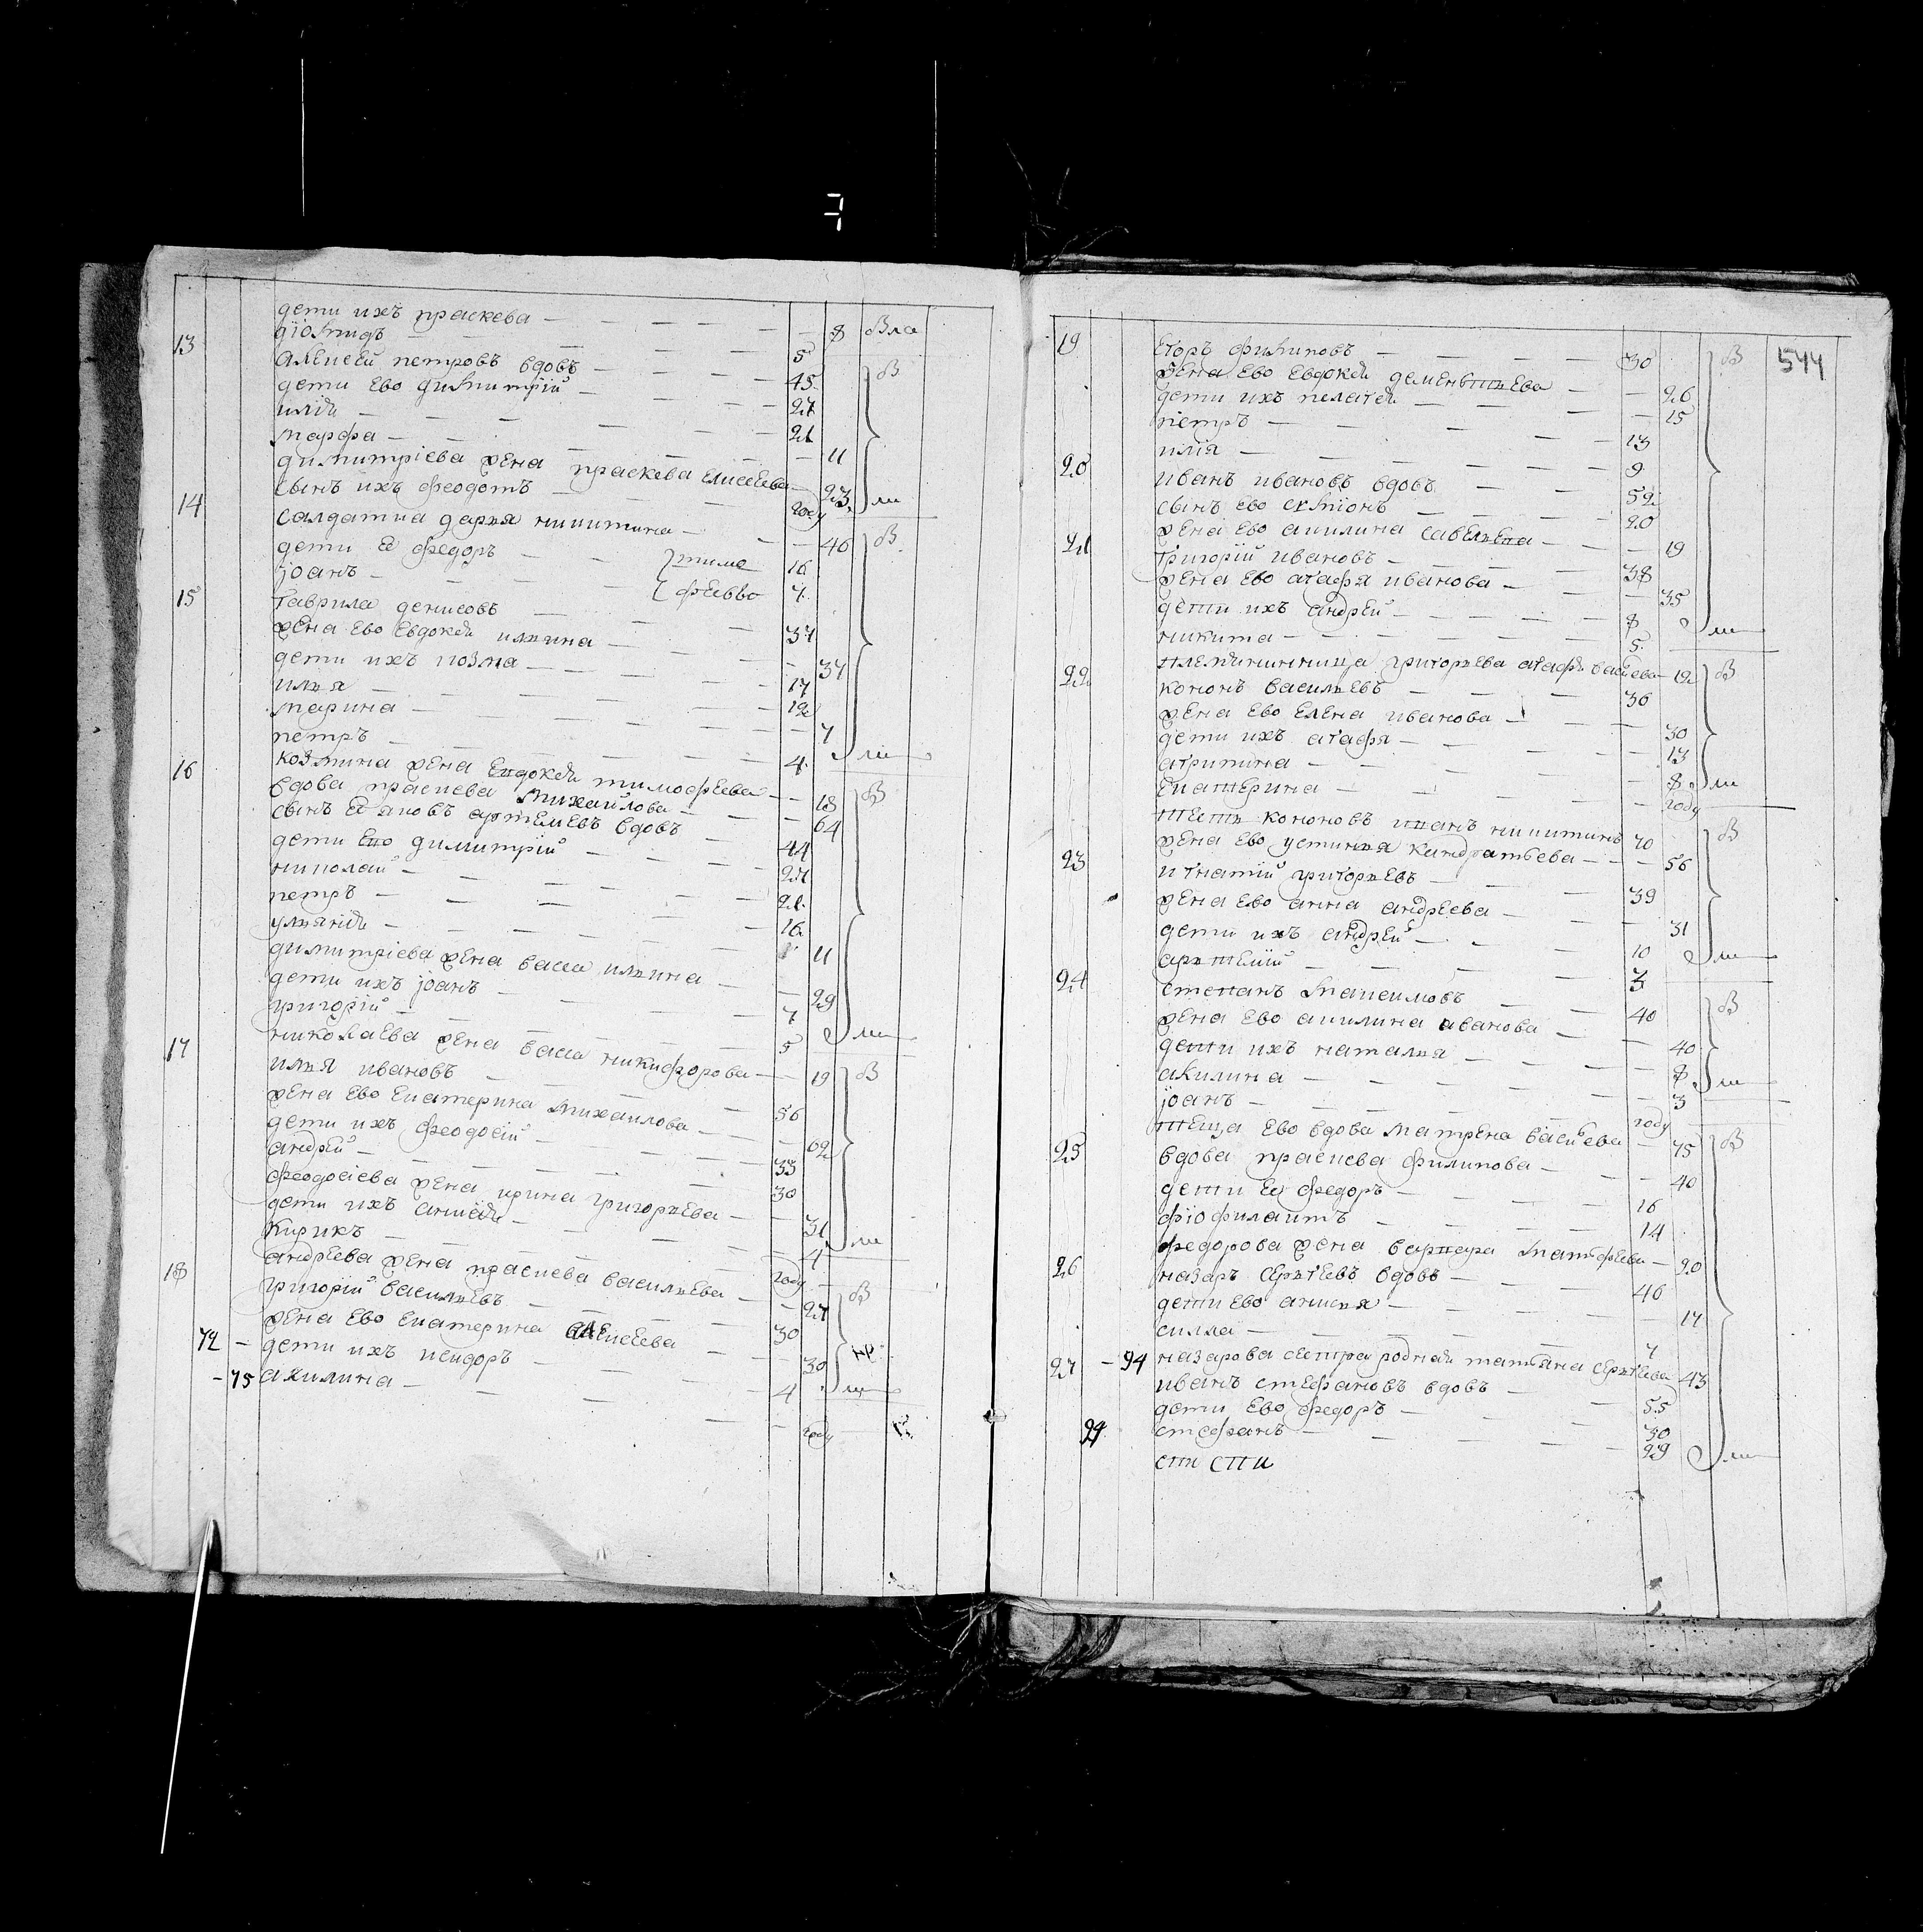 7
дети ихъ праскева — 8 Вла
діомидъ — 5
13 алексей петровъ вдовъ — 45 В
дети ево димитрій — 27
илія — 21
марфа — 11
димитріева жена праскева елисеева — 23
сынъ ихъ феодотъ — году
14 салдатка дарья никитина — 40 В
дети ее федоръ — 16
іоанъ — 7
15 гаврила денисовъ — 37
жена ево евдокея ильина — 37
дети ихъ козма — 17
илья — 12
марина — 7
петръ — 4
козмина жена евдокея тимофеева — 18
16 вдова праскева михаилова — 64 В
сынъ ее яковъ артемевъ вдовъ — 44
дети ево димитрій — 24
николай — 21
петръ — 16
ульянія — 11
димитріева жена васса ильина — 29
дети ихъ іоанъ — 7
григорій — 5
николаева жена васса никифорова — 19
17 илья ивановъ — 56 В
жена ево екатерина михаилова — 62
дети ихъ феодосій — 33
андрей — 30
феодосіева жена ирина григорьева — 31
дети ихъ анисія — 4
кирикъ — году
андреева жена праскева васильева — 27
18 григорій васильевъ — 30 В
жена ево екатерина алексеева — 30
72 — дети ихъ исидоръ — 4
— 75 акилина — году
544
19 егоръ филиповъ — 30 В
жена ево евдокея дементьева — 26
дети ихъ пелагея — 15
петръ — 13
илія — 9
20 иванъ ивановъ вдовъ — 52
сынъ ево — 20
жена ево акилина савельева — 19
21 григорій ивановъ — 38
жена ево агафья иванова — 35
дети ихъ андрей — 8
никита — 5
племянинница григорьева агафья васильева — 12
22 кононъ васильевъ — 36 В
жена ево елена иванова — 30
дети ихъ агафья — 13
агрипина — 8
екатерина — году
тесть кононовъ иванъ никитинъ 70
жена ево устинья кандратьева — 56 В
23 игнатій григорьевъ — 39
жена ево анна андреева — 31
дети ихъ андрей — 10
артемій — 3
24 степанъ максимовъ — 40 В
жена ево акилина иванова — 40
дети ихъ наталья — 8
акилина — 3
іоанъ — году
теща ево вдова матрена васильева — 75
25 вдова праскева филипова — 40 В
дети ее федоръ — 16
фіофилактъ — 14
федорова жена варвара матфеева — 20
26 назаръ сергеевъ вдовъ — 46
дети ево анисья — 17
силла — 7
— 94 назарова сестра родная татьяна сергеева 43
27 иванъ стефановъ вдовъ — 55
дети ево федоръ — 30
99 стефанъ — 29